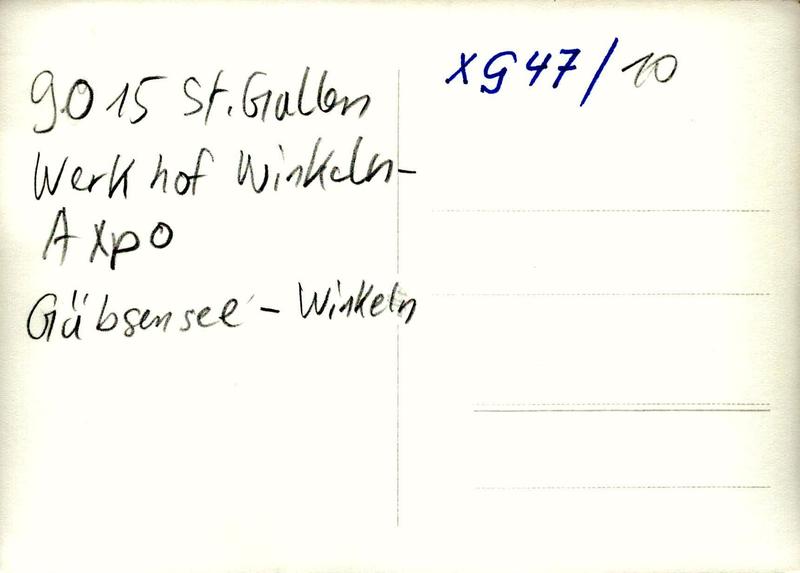 9015 St. Gallen
Werkhof Winkeln-
Axpo
Gübsensee - Winkeln
XG 47/10